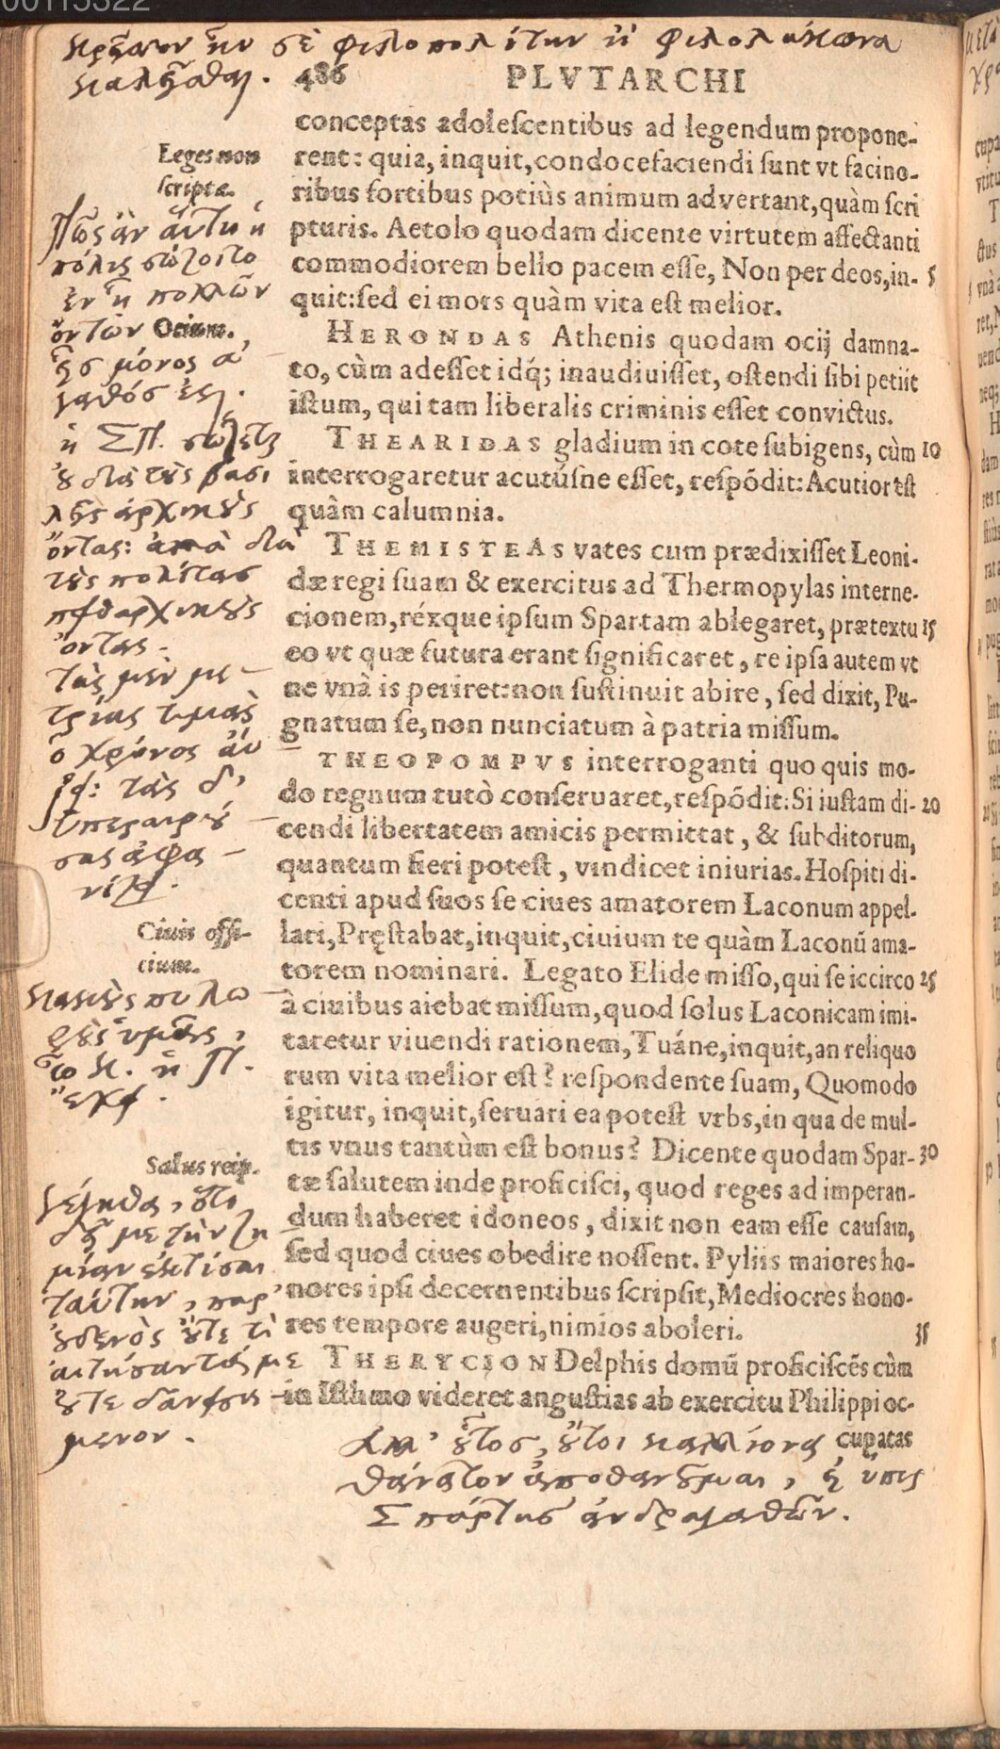 00115322
κρεῖττον ἦν σὲ φιλοπολίτην ἢ φιλολάκωνα
καλεῖσθαι.
486 PLVTARCHI
conceptas adolescentibus ad legendum propone-
rent: quia, inquit, condocefaciendi sunt vt facino-
ribus fortibus potiùs animum advertant, quàm scri
pturis. Aetolo quodam dicente virtutem affectanti
commodiorem bello pacem esse, Non per deos, in- 5
quit: sed ei mors quàm vita est melior.
HERONDAS Athenis quodam ocij damna-
to, cùm adesset idq́; inaudiuisset, ostendi sibi petiit
istum, qui tam liberalis criminis esset convictus.
THEARIDAS gladium in cote subigens, cùm 10
interrogaretur acutúsne esset, respõdit: Acutior est
quàm calumnia.
THEMISTEAS vates cum prædixisset Leoni-
dæ regi suam & exercitus ad Thermopylas interne-
cionem, réxque ipsum Spartam ablegaret, prætextu 15
eo vt quæ futura erant significaret, re ipsa autem vt
ne vnà is periret: non sustinuit abire, sed dixit, Pu-
gnatum se, non nunciatum à patria missum.
THEOPOMPVS interroganti quo quis mo-
do regnum tutò conseruaret, respõdit: Si iustam di- 20
cendi libertatem amicis permittat, & subditorum,
quantum fieri potest, vindicet iniurias. Hospiti di-
centi apud suos se ciues amatorem Laconum appel-
lari, Pręstabat, inquit, ciuium te quàm Laconũ ama-
torem nominari. Legato Elide misso, qui se iccirco 25
à ciuibus aiebat missum, quod solus Laconicam imi-
taretur viuendi rationem, Tuáne, inquit, an reliquo
rum vita melior est? respondente suam, Quomodo
igitur, inquit, seruari ea potest vrbs, in qua de mul-
tis vnus tantùm est bonus? Dicente quodam Spar- 30
tæ salutem inde proficisci, quod reges ad imperan-
dum haberet idoneos, dixit non eam esse causam,
sed quod ciues obedire nossent. Pyliis maiores ho-
nores ipsi decernentibus scripsit, Mediocres hono-
res tempore augeri, nimios aboleri. 35
THERYCION Delphis domũ proficiscẽs cùm
in Isthmo videret angustias ab exercitu Philippi oc-
cupatas
Leges non
scriptæ.
Πῶς ἂν αὕτη ἡ
πόλις σώζοιτο
ἐν ᾗ πολλῶν
ὄντων
Otium.
εἷς μόνος ἀ
γαθός ἐςι.
ἡ ΣΠ. σώζεται
οὐ διὰ τοὺς βασι
λεῖς ἀρχικοὺς
ὄντας: ἀλλὰ διὰ
τοὺς πολίτας
πειθαρχικοὺς
ὄντας.
τὰς μὲν με-
τρίας τιμὰς
ὁ χρόνος αὔ
ξει: τὰς δ'
ὑπεραιρού-
σας ἀφα-
νίζει.
Ciuis offi-
cium.
Salus reip.
ἀλλ' οὗτος, οὗτοι καλλίονα
θάνατον ἀποθανοῦμαι, ἢ ὑπὲρ
Σπάρτης ἀνδραγαθῶν.